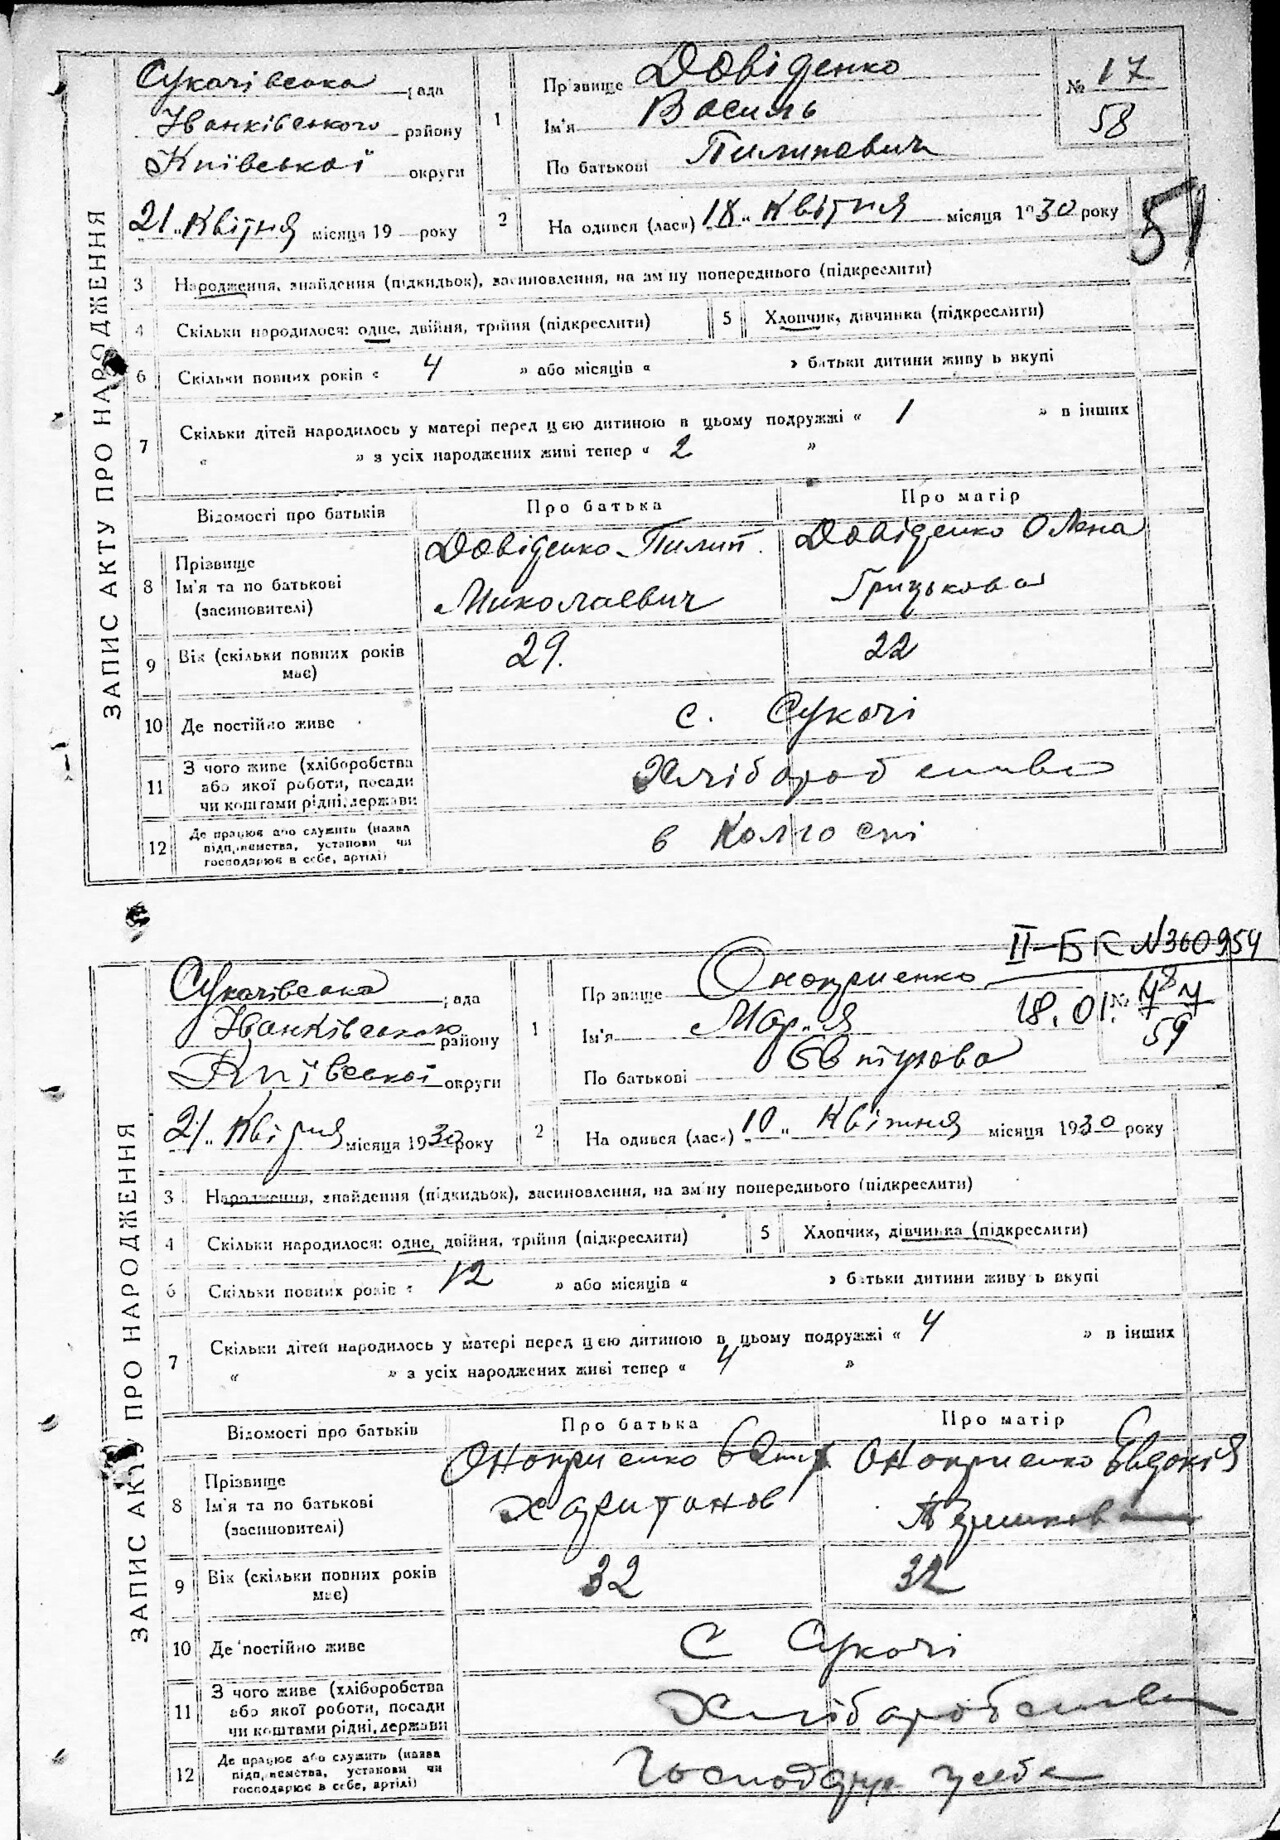 ЗАПИС АКТУ ПРО НАРОДЖЕННЯ
Сукачівська рада
Іванківського району
Київської округи
21 „ Квітня місяця 19 року
1
Прізвище Довіденко
Ім'я Василь
По батькові Пилипович
№ 17
58
2
Народився (лась) 18 „ Квітня місяця 1930 року
51
3 Народження, знайдення (підкидьок), засиновлення, на зміну попереднього (підкреслити)
4 Скільки народилося: одне, двійня, трійня (підкреслити)
5 Хлопчик, дівчинка (підкреслити)
6 Скільки повних років « 4 » або місяців « » батьки дитини живуть вкупі
7 Скільки дітей народилось у матері перед цією дитиною в цьому подружжі « 1 » в інших
« » з усіх народжених живі тепер « 2 »
Відомості про батьків
Про батька
Про матір
8 Прізвище
Ім'я та по батькові
(засиновителі)
Довіденко Пилип
Миколаевич
Довіденко Олена
Грицькова
9 Вік (скільки повних років має)
29.
22
10 Де постійно живе
с. Сукачі
11 З чого живе (хліборобства
або якої роботи, посади
чи коштами рідні, держави
Хліборобство
12 Де працює або служить (назва
підприємства, установи чи
господарює в себе, артілі)
в Колгоспі
ІІ-БК №360954
18.01.
ЗАПИС АКТУ ПРО НАРОДЖЕННЯ
Сукачівська рада
Іванківського району
Київської округи
21 „ Квітня місяця 1930 року
1
Прізвище Оноприенко
Ім'я Мария
По батькові
№
59
2
Народився (лась) 10 „ Квітня місяця 1930 року
3 Народження, знайдення (підкидьок), засиновлення, на зміну попереднього (підкреслити)
4 Скільки народилося: одне, двійня, трійня (підкреслити)
5 Хлопчик, дівчинка (підкреслити)
6 Скільки повних років « 12 » або місяців « » батьки дитини живуть вкупі
7 Скільки дітей народилось у матері перед цією дитиною в цьому подружжі « 4 » в інших
« » з усіх народжених живі тепер « 4 »
Відомості про батьків
Про батька
Про матір
8 Прізвище
Ім'я та по батькові
(засиновителі)
Оноприенко
Харитонов
Оноприенко Евдокія
9 Вік (скільки повних років має)
32
32
10 Де постійно живе
С Сукачі
11 З чого живе (хліборобства
або якої роботи, посади
чи коштами рідні, держави
Хліборобство
12 Де працює або служить (назва
підприємства, установи чи
господарює в себе, артілі)
Господарує у себе